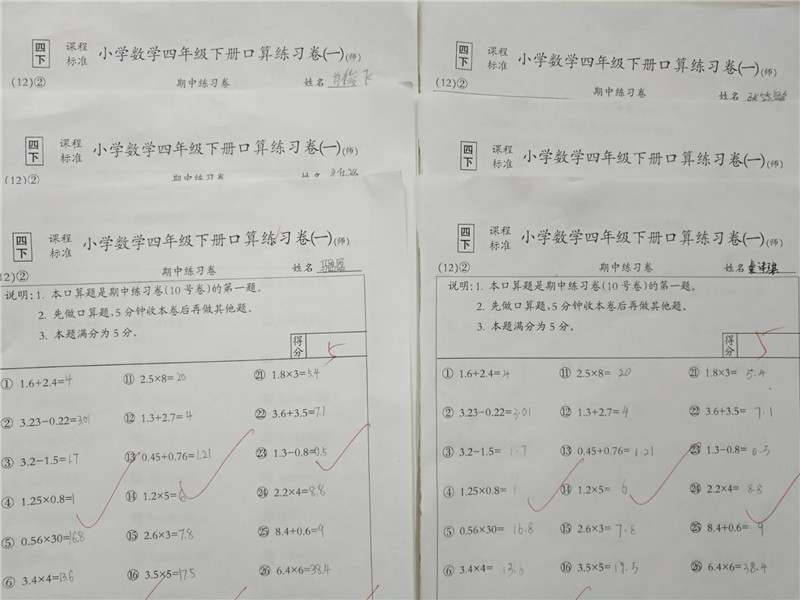 四下 课程标准 小学数学四年级下册口算练习卷(一)(师)
(12)② 期中练习卷 姓名
四下 课程标准 小学数学四年级下册口算练习卷(一)(师)
期中练习卷 姓名
四下 课程标准 小学数学四年级下册口算练习卷(一)(师)
(12)② 期中练习卷 姓名
四下 课程标准 小学数学四年级下册口算练习卷(一)(师)
四下 课程标准 小学数学四年级下册口算练习卷(一)(师)
12)② 期中练习卷 姓名
说明:1. 本口算题是期中练习卷(10号卷)的第一题。
2. 先做口算题,5分钟收本卷后再做其他题。
3. 本题满分为5分。
得分 5
① 1.6+2.4=4 ⑪ 2.5×8=20 ㉑ 1.8×3=5.4
② 3.23−0.22=3.01 ⑫ 1.3+2.7=4 ㉒ 3.6+3.5=7.1
③ 3.2−1.5=1.7 ⑬ 0.45+0.76=1.21 ㉓ 1.3−0.8=0.5
④ 1.25×0.8=1 ⑭ 1.2×5=6 ㉔ 2.2×4=8.8
⑤ 0.56×30=16.8 ⑮ 2.6×3=7.8 ㉕ 8.4+0.6=9
⑥ 3.4×4=13.6 ⑯ 3.5×5=17.5 ㉖ 6.4×6=38.4
四下 课程标准 小学数学四年级下册口算练习卷(一)(师)
(12)② 期中练习卷 姓名
说明:1. 本口算题是期中练习卷(10号卷)的第一题。
2. 先做口算题,5分钟收本卷后再做其他题。
3. 本题满分为5分。
得分 5
① 1.6+2.4=4 ⑪ 2.5×8= 20 ㉑ 1.8×3= 5.4
② 3.23−0.22=3.01 ⑫ 1.3+2.7= 4 ㉒ 3.6+3.5= 7.1
③ 3.2−1.5= 1.7 ⑬ 0.45+0.76= 1.21 ㉓ 1.3−0.8= 0.5
④ 1.25×0.8= 1 ⑭ 1.2×5= 6 ㉔ 2.2×4= 8.8
⑤ 0.56×30= 16.8 ⑮ 2.6×3= 7.8 ㉕ 8.4+0.6= 9
⑥ 3.4×4= 13.6 ⑯ 3.5×5= ㉖ 6.4×6= 38.4